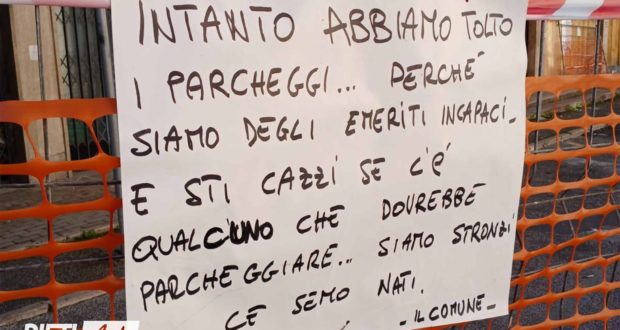 INTANTO ABBIAMO TOLTO
I PARCHEGGI... PERCHÉ
SIAMO DEGLI EMERITI INCAPACI_
E STI CAZZI SE C'É
QUALCUNO CHE DOVREBBE
PARCHEGGIARE... SIAMO STRONZI
CE SEMO NATI.
- IL COMUNE -